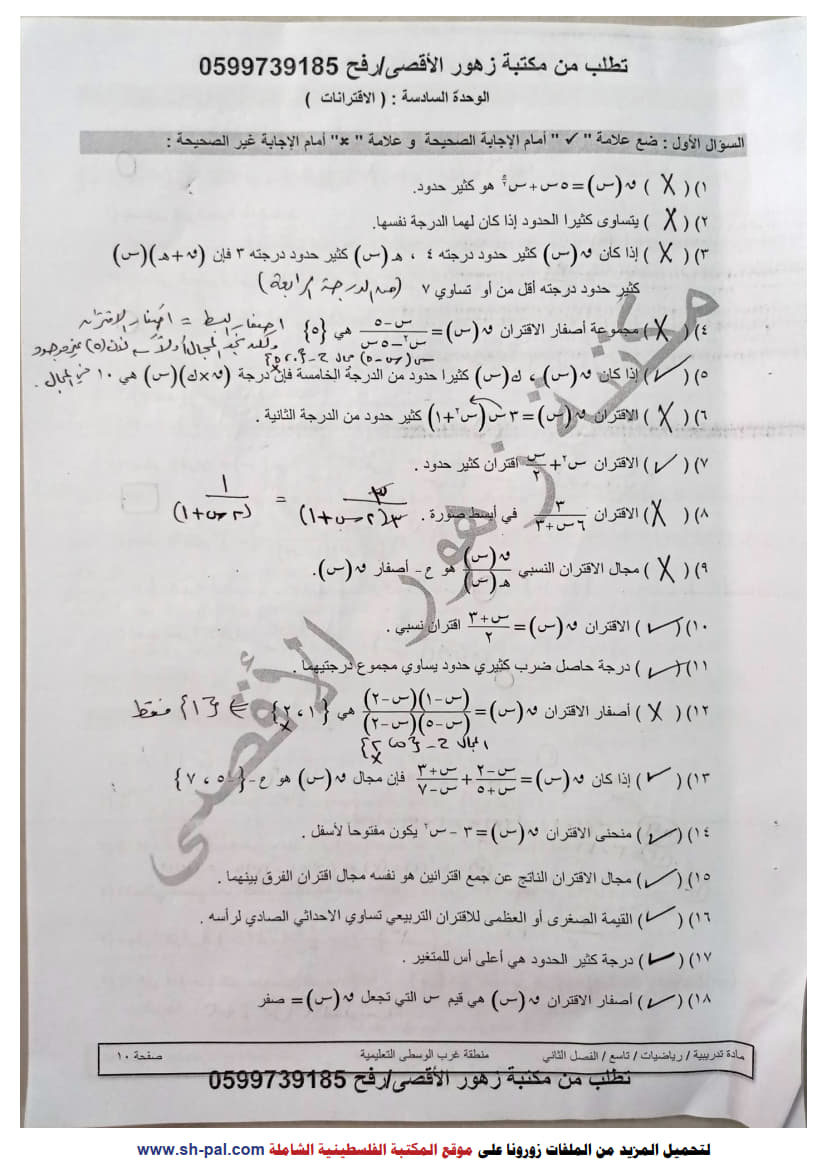 تطلب من مكتبة زهور الأقصى/رفح 0599739185
الوحدة السادسة : ( الاقترانات )
السؤال الأول : ضع علامة " ✓ " أمام الإجابة الصحيحة و علامة " × " أمام الإجابة غير الصحيحة :
١) ( X ) ق(س) = ٥س + س هو كثير حدود.
٢) ( X ) يتساوى كثيرا الحدود إذا كان لهما الدرجة نفسها.
٣) ( X ) إذا كان ق(س) كثير حدود درجته ٤ ، هـ(س) كثير حدود درجته ٣ فإن (ق + هـ)(س)
كثير حدود درجته أقل من أو تساوي ٧ (من الدرجة الرابعة)
أصفار البسط = أصفار الاقتران
٤) ( X ) مجموعة أصفار الاقتران ق(س) = (س - ٥)/(س² - ٥س) هي {٥}
ولكن نجد المجال أولاً لأن (٥) غير موجود
س(س-٥) مجال ح - {٠، ٥}
٥) ( ✓ ) إذا كان ق(س) ، ك(س) كثيرا حدود من الدرجة الخامسة فإن درجة (ق × ك)(س) هي ١٠
في المجال .
٦) ( X ) الاقتران ق(س) = ٣س(س² + ١) كثير حدود من الدرجة الثانية .
٧) ( ✓ ) الاقتران س² + س/٢ اقتران كثير حدود .
٨) ( X ) الاقتران ٣/(٦س + ٣) في أبسط صورة . ٣/٣(٢س+١) = ١/(٢س+١)
٩) ( X ) مجال الاقتران النسبي ق(س)/هـ(س) هو ح - أصفار ق(س).
١٠) ( ✓ ) الاقتران ق(س) = (س + ٣)/٢ اقتران نسبي .
١١) ( ✓ ) درجة حاصل ضرب كثيري حدود يساوي مجموع درجتيهما .
١٢) ( X ) أصفار الاقتران ق(س) = (س - ١)(س - ٢)/(س - ٥)(س - ٢) هي {١ ، ٢} ⇐ {١} فقط
المجال ح - {٥، ٢}
١٣) ( ✓ ) إذا كان ق(س) = (س - ٢)/(س + ٥) + (س + ٣)/(س - ٧) فإن مجال ق(س) هو ح - {-٥ ، ٧}
١٤) ( ✓ ) منحنى الاقتران ق(س) = ٣ - س² يكون مفتوحاً لأسفل .
١٥) ( ✓ ) مجال الاقتران الناتج عن جمع اقترانين هو نفسه مجال اقتران الفرق بينهما .
١٦) ( ✓ ) القيمة الصغرى أو العظمى للاقتران التربيعي تساوي الاحداثي الصادي لرأسه .
١٧) ( ✓ ) درجة كثير الحدود هي أعلى أس للمتغير .
١٨) ( ✓ ) أصفار الاقتران ق(س) هي قيم س التي تجعل ق(س) = صفر
مكتبة زهور الأقصى
مادة تدريبية / رياضيات / تاسع / الفصل الثاني منطقة غرب الوسطى التعليمية صفحة ١٠
تطلب من مكتبة زهور الأقصى/رفح 0599739185
لتحميل المزيد من الملفات زورونا على موقع المكتبة الفلسطينية الشاملة www.sh-pal.com